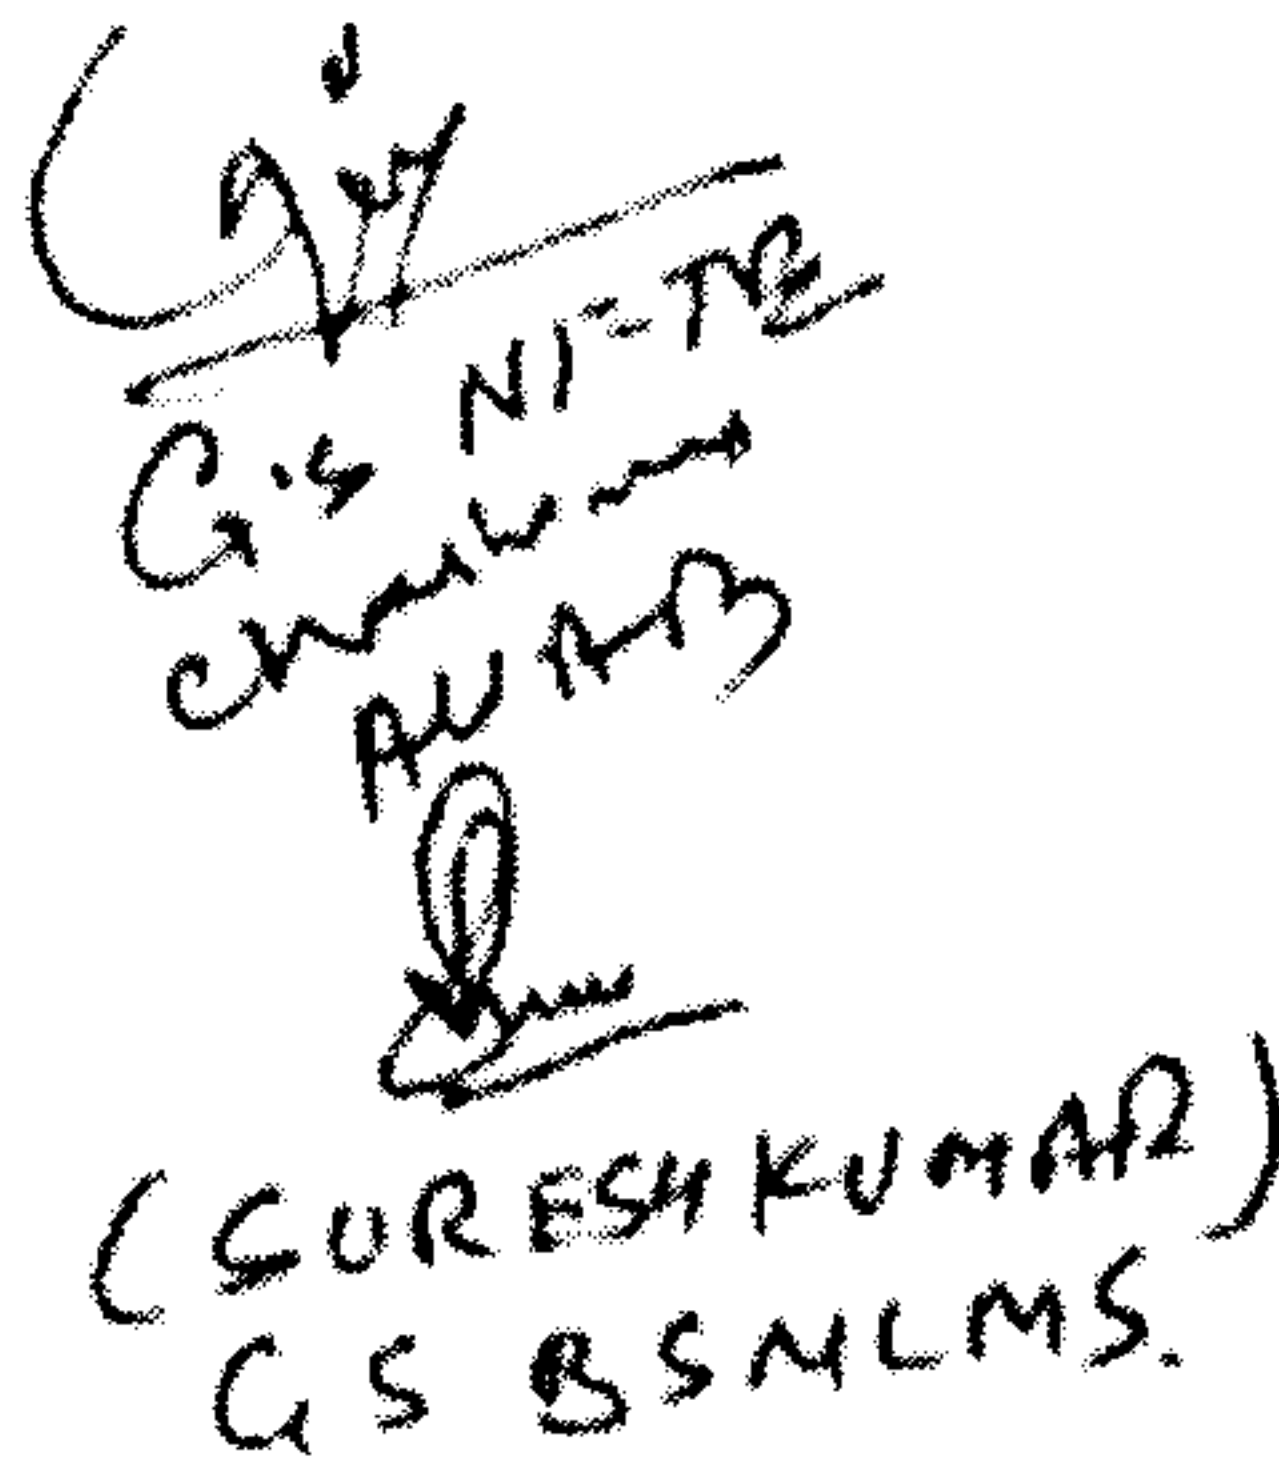 G.S NFTE
Chairman
AUAB
(SURESH KUMAR)
GS BSNLMS.